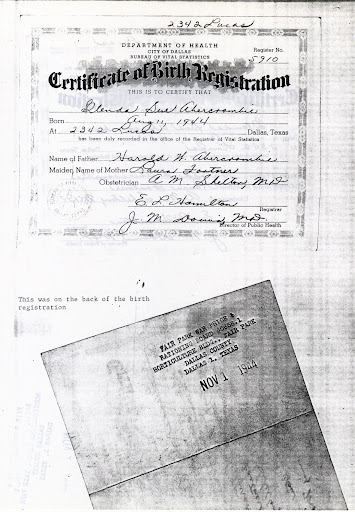 2342 Lucas
DEPARTMENT OF HEALTH
CITY OF DALLAS
BUREAU OF VITAL STATISTICS
Register No.
5910
Certificate of Birth Registration
THIS IS TO CERTIFY THAT
Glenda Sue Abercrombie
Born Aug 11, 1944
At 2342 Lucas Dallas, Texas
has been duly recorded in the office of the Registrar of Vital Statistics
Name of Father Harold W. Abercrombie
Maiden Name of Mother Laura Fortner
Obstetrician A. M. Shelton, M.D.
E. L. Hamilton
Registrar
J. M. Dowis, M.D.
Director of Public Health
This was on the back of the birth
registration
FAIR PARK WAR PRICE &
RATIONING BOARD
HORTICULTURE BLDG., FAIR PARK
DALLAS COUNTY
DALLAS 1, TEXAS
NOV 1 1944